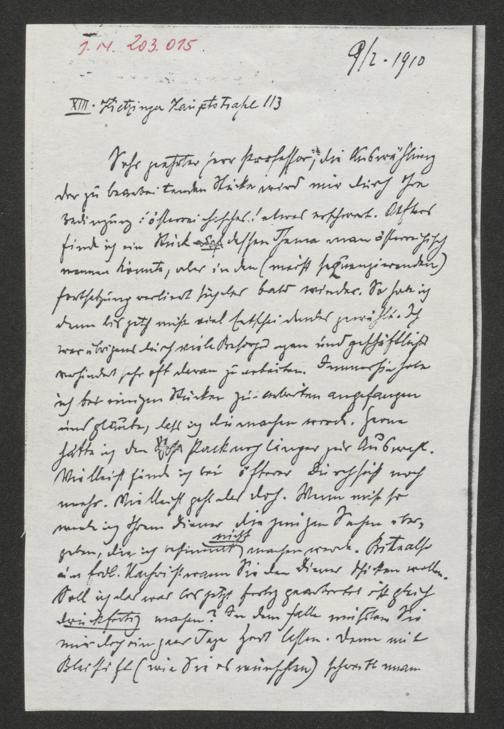 I.N. 203.015.
9/2-1910
XIII. Hietzinger Hauptstraße 113
Sehr geehrter Herr Professor, die Auswählung
der zu bearbeitenden Stücke wird mir durch Ihre
Bedingung: österreichisches! etwas erschwert. Oefters
finde ich ein Stück dessen Thema man österreichisch
nennen könnte, aber in den (meist sequenzierenden)
Fortsetzung verliert sich das bald wieder. So habe ich
denn bis jetzt nicht viel Entscheidendes gewählt. Ich
war übrigens durch viele und geschäftlich
verhindert, sehr oft daran zu arbeiten. Immerhin habe
ich bei einigen Stücken zu arbeiten angefangen
und glaube, dass ich die machen werde. Gerne
hätte ich den Pack noch länger zur Auswahl.
Vielleicht finde ich bei öfterer Durchsicht noch
mehr. Vielleicht geht das doch. Wenn nicht so
werde ich Ihrem Diener diejenigen Sachen über-
geben, die ich bestimmt nicht machen werde. Bitte also
um frdl. Nachricht wann Sie den Diener schicken wollen.
Soll ich das was bis jetzt fertig gearbeitet ist gleich
druckfertig machen? In dem Falle müssten Sie
mir doch ein paar Tage Zeit lassen. Denn mit
Bleistift (wie Sie es wünschten) schreibt man